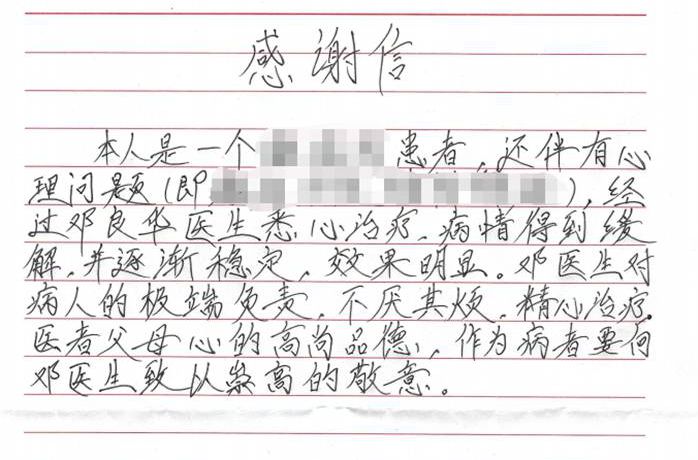 感谢信
本人是一个患者，还伴有心
理问题（即），经
过邓良华医生悉心治疗，病情得到缓
解，并逐渐稳定，效果明显。邓医生对
病人的极端负责，不厌其烦，精心治疗。
医者父母心的高尚品德，作为病者要向
邓医生致以崇高的敬意。